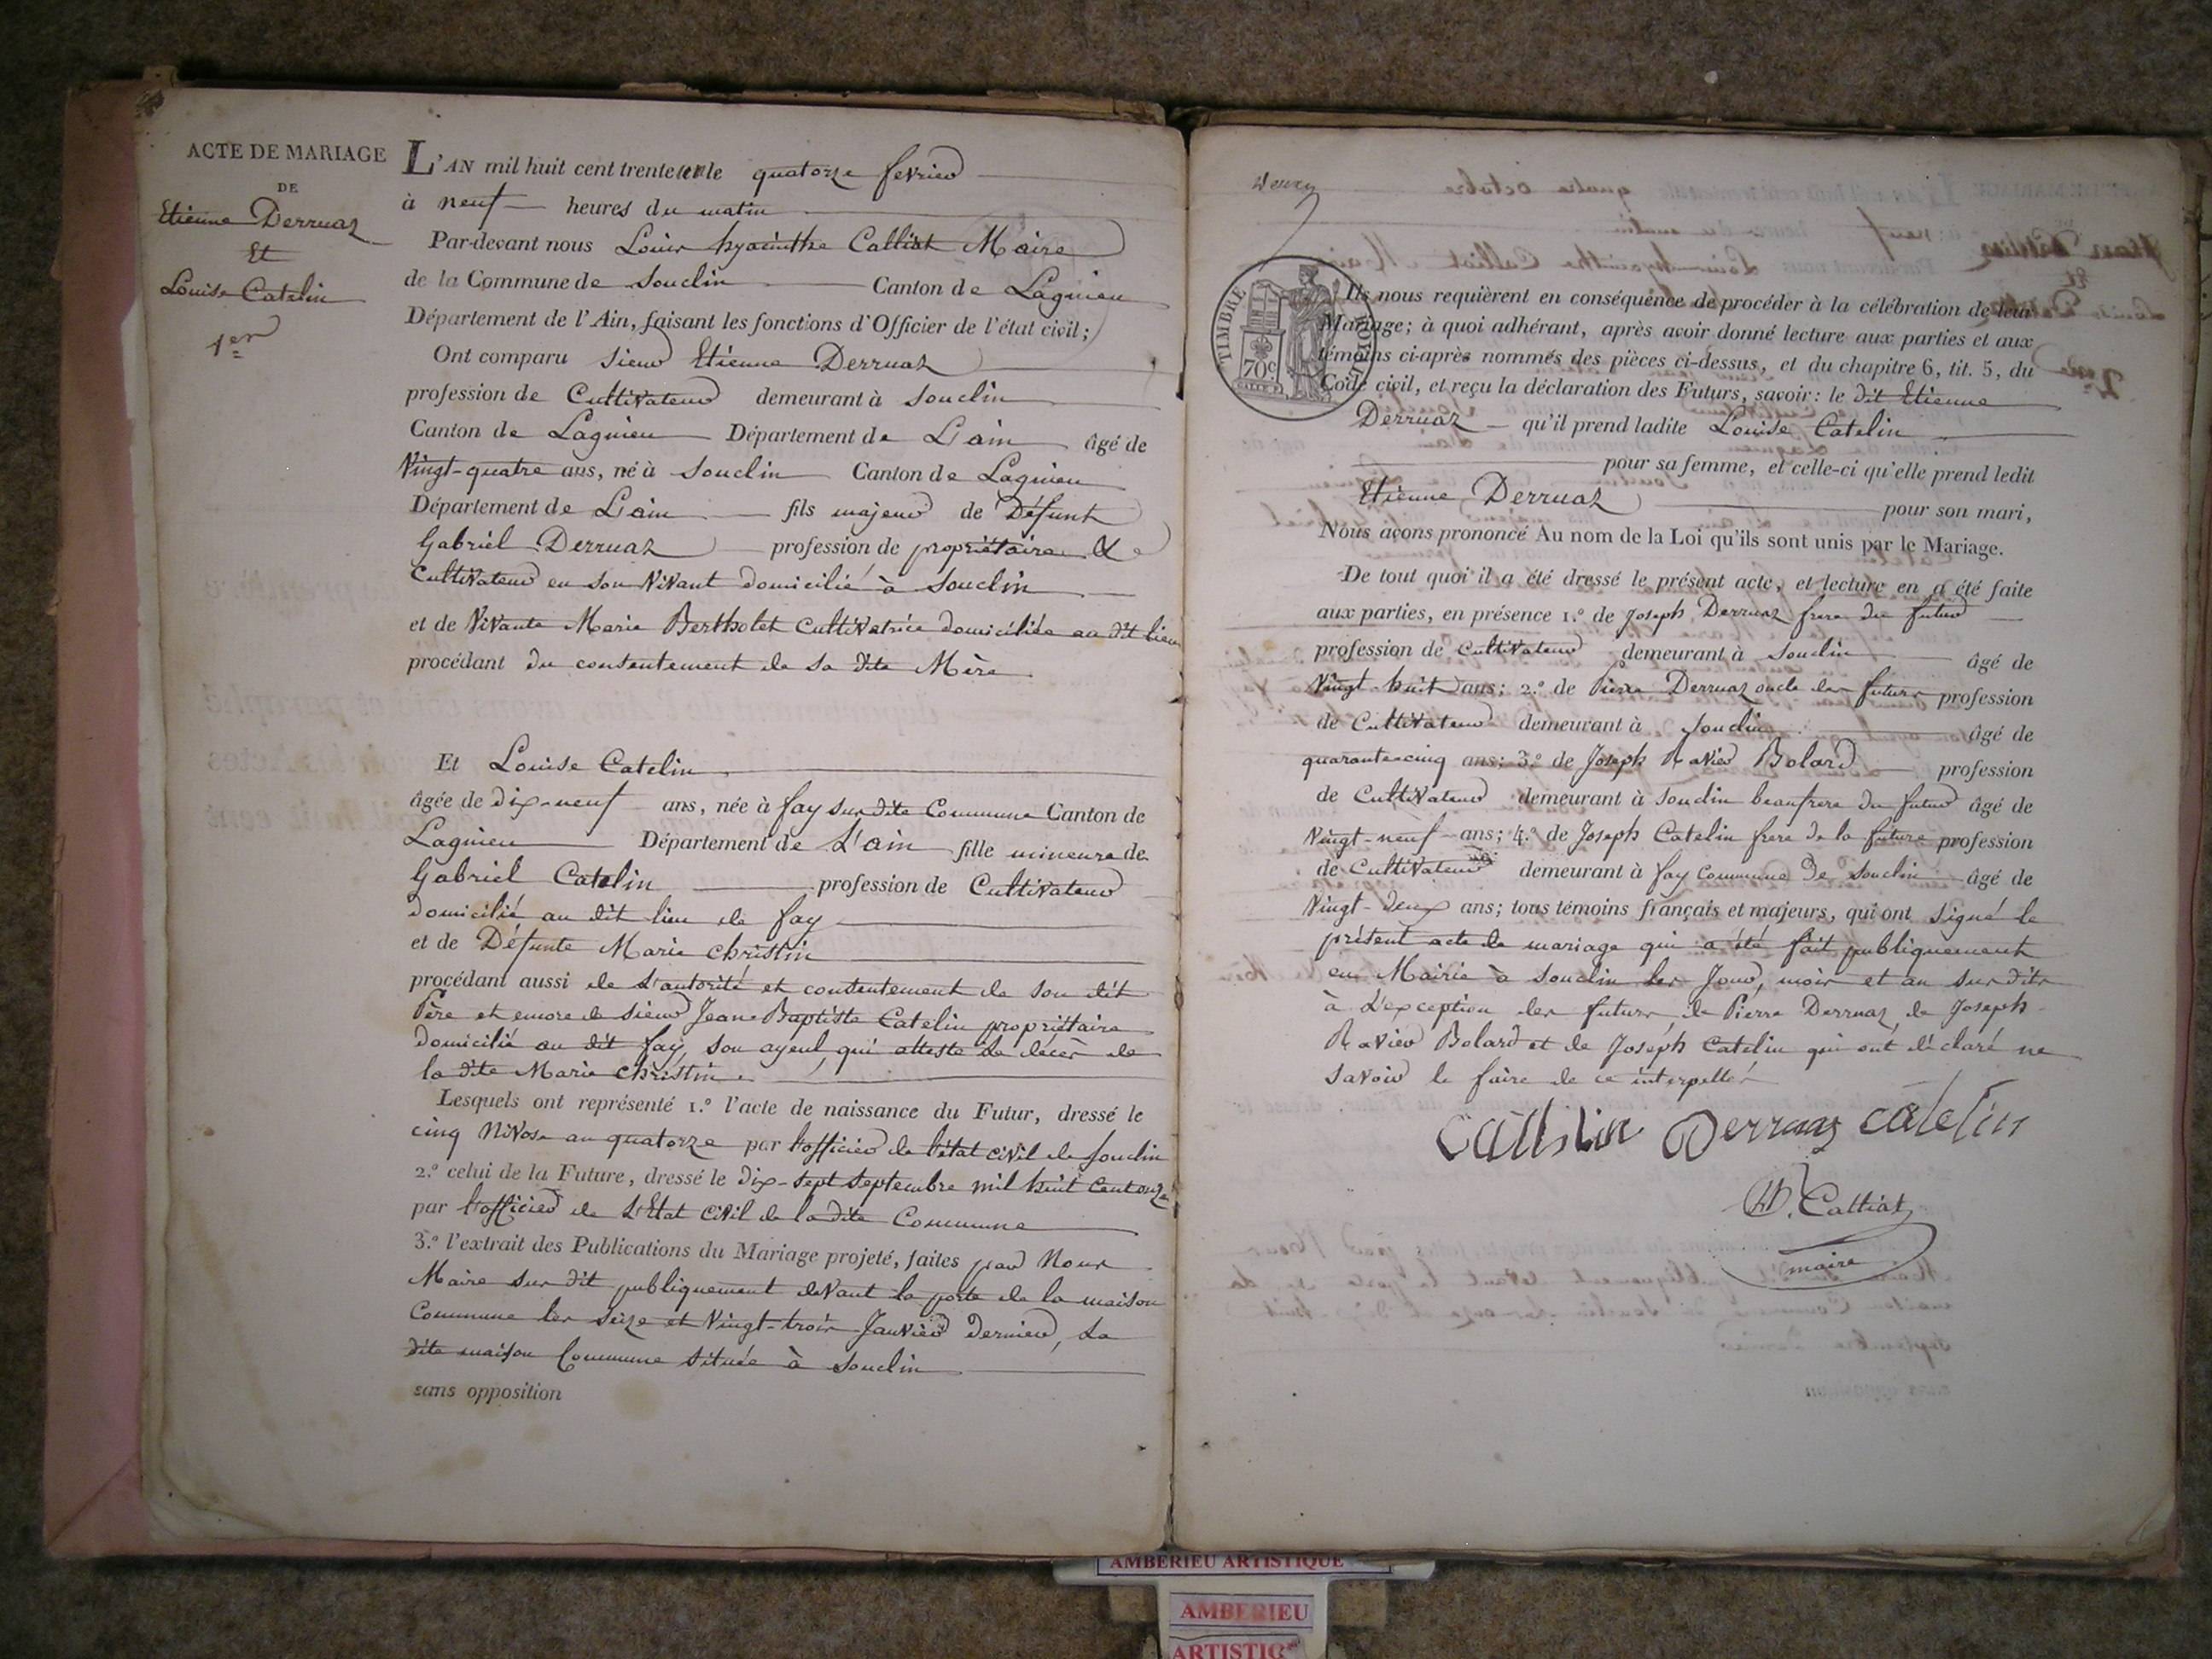 ACTE DE MARIAGE
DE
Etienne Derruaz
Et
Louise Catelin
1er
L'AN mil huit cent trente un le quatorze fevrier
à neuf heures du matin
Par-devant nous Louis hyacinthe Calliat Maire
de la Commune de Souclin Canton de Lagnieu
Département de l'Ain, faisant les fonctions d'Officier de l'état civil;
Ont comparu Sieur Etienne Derruaz
profession de Cultivateur demeurant à Souclin
Canton de Lagnieu Département de L'ain âgé de
Vingt-quatre ans, né à Souclin Canton de Lagnieu
Département de L'ain fils majeur de Défunt
Gabriel Derruaz profession de propriétaire &
Cultivateur en son Vivant domicilié à Souclin
et de Vivante Marie Bertholet Cultivatrice domiciliée au dit lieu
procédant du consentement de sa dite Mère
Et Louise Catelin
âgée de dix-neuf ans, née à fay sur dite Commune Canton de
Lagnieu Département de L'ain fille mineure de
Gabriel Catelin profession de Cultivateur
domicilié au dit lieu de fay
et de Défunte Marie christin
procédant aussi de L'autorité et consentement de son dit
Père et encore de Sieur Jean-Baptiste Catelin propriétaire
domicilié au dit fay, son ayeul, qui atteste Le décès de
la dite Marie christin.
Lesquels ont représenté 1.º l'acte de naissance du Futur, dressé le
cinq Nivose an quatorze par l'officier de l'état civil de Souclin
2.º celui de la Future, dressé le dix-sept septembre mil huit cent onze
par l'officier de L'Etat Civil de la dite Commune
3.º l'extrait des Publications du Mariage projeté, faites par Nous
Maire sur dit publiquement devant la porte de la maison
Commune les seize et Vingt-trois Janvier Dernier, La
dite maison Commune située à Souclin
sans opposition
TIMBRE ROYAL
70c
Ils nous requièrent en conséquence de procéder à la célébration de leur
Mariage; à quoi adhérant, après avoir donné lecture aux parties et aux
témoins ci-après nommés des pièces ci-dessus, et du chapitre 6, tit. 5, du
Code civil, et reçu la déclaration des Futurs, savoir: le dit Etienne
Derruaz qu'il prend ladite Louise Catelin
pour sa femme, et celle-ci qu'elle prend ledit
Etienne Derruaz pour son mari,
Nous avons prononcé Au nom de la Loi qu'ils sont unis par le Mariage.
De tout quoi il a été dressé le présent acte, et lecture en a été faite
aux parties, en présence 1.º de Joseph Derruaz frere du futur
profession de Cultivateur demeurant à Souclin âgé de
Vingt-huit ans; 2.º de Pierre Derruaz oncle des futurs profession
de Cultivateur demeurant à Souclin âgé de
quarante-cinq ans; 3.º de Joseph Ravier Bolard profession
de Cultivateur demeurant à Souclin beaufrere du futur âgé de
Vingt-neuf ans; 4.º de Joseph Catelin frere de la future profession
de Cultivateur demeurant à fay Commune De Souclin âgé de
Vingt-deux ans; tous témoins français et majeurs, qui ont signé le
présent acte de mariage qui a été fait publiquement
en Mairie à Souclin les Jour, mois et an sur dits
à L'exception des futurs, de Pierre Derruaz, de Joseph
Ravier Bolard et de Joseph Catelin qui ont déclaré ne
Savoir le faire de ce interpellés
Derruaz catelin
Calliat
maire
AMBERIEU ARTISTIQUE
AMBERIEU
ARTISTIQ